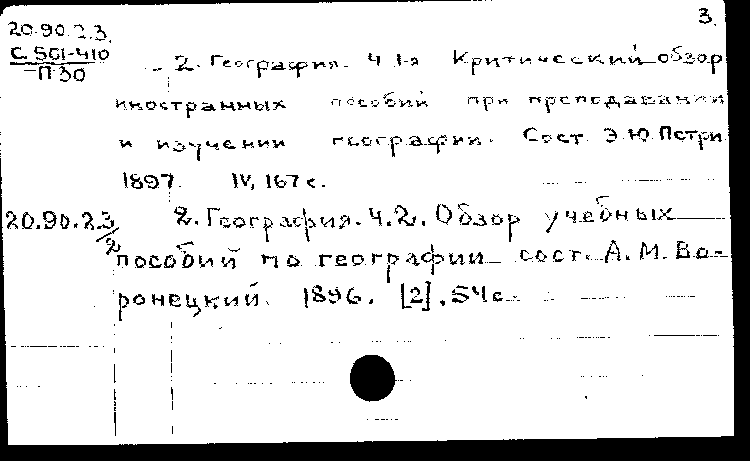 3.
20.90.2.3.
С 561-410
П30
2. География. Ч 1-я Критический обзор
иностранных пособий при преподавании
и изучении географии. Сост Э.Ю.Петри
1897. IV, 167 с.
20.90.2.3/2 2. География. Ч.2. Обзор учебных
пособий по географии сост. А.М.Во-
ронецкий. 1896. [2], 54 с.